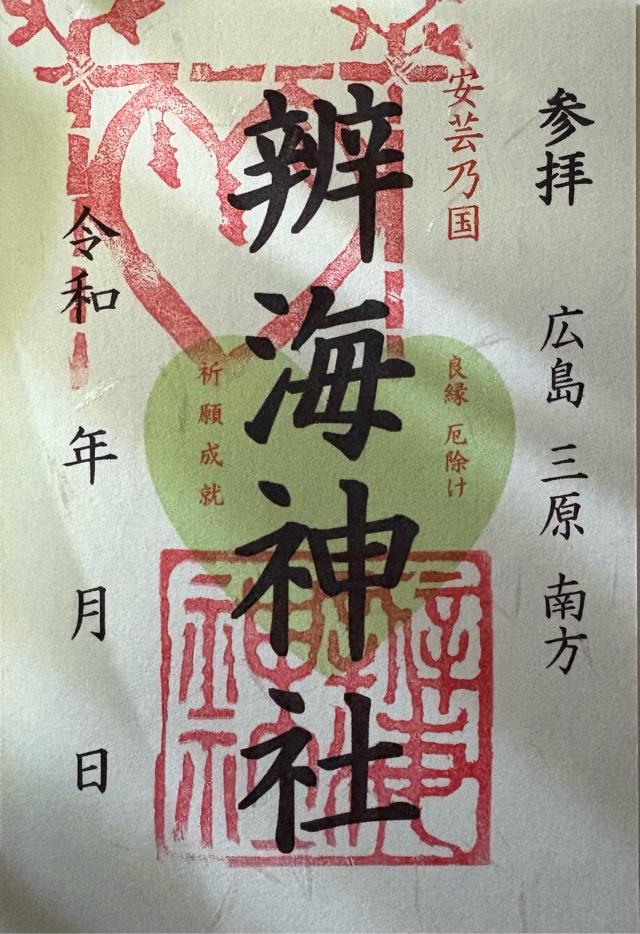 参拝 広島 三原 南方
安芸乃国
良縁 厄除け
辨海神社
祈願成就
令和 年 月 日